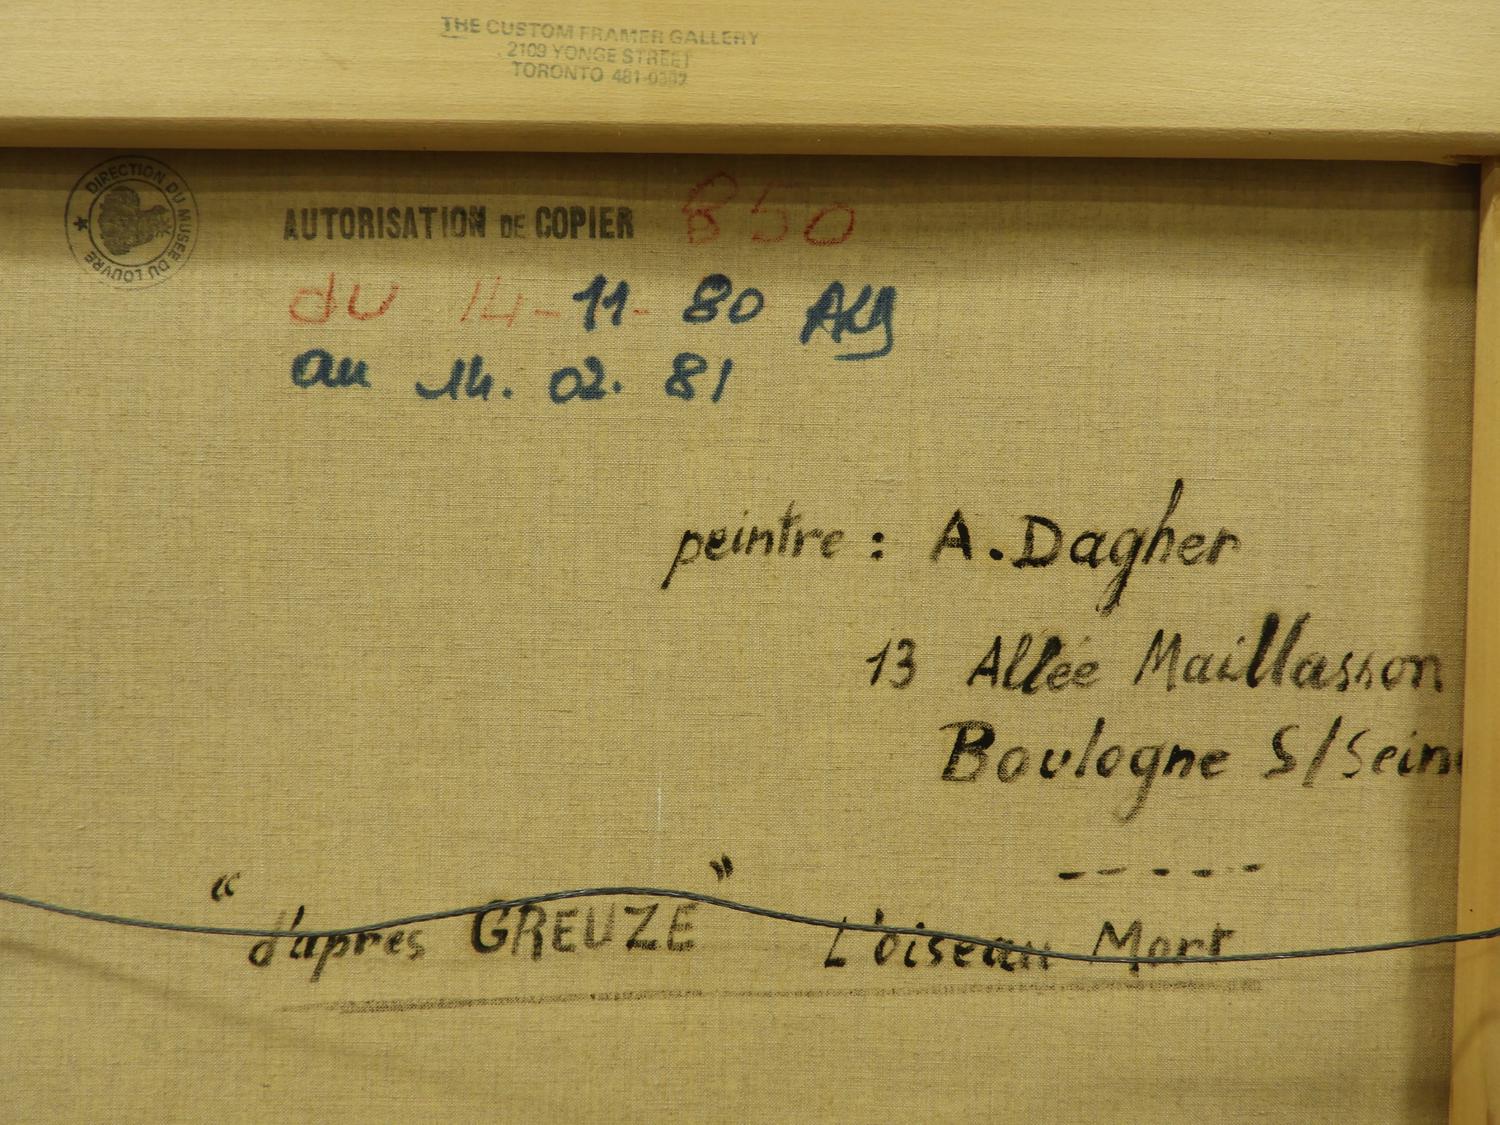 THE CUSTOM FRAMER GALLERY
2109 YONGE STREET
TORONTO 481-
DIRECTION DU MUSEE DU LOUVRE
AUTORISATION DE COPIER 850
du 14-11-80
au 14.02.81
peintre : A. Dagher
13 Allée Maillasson
Boulogne S/Seine
-----
"d'après GREUZE" L'oiseau Mort